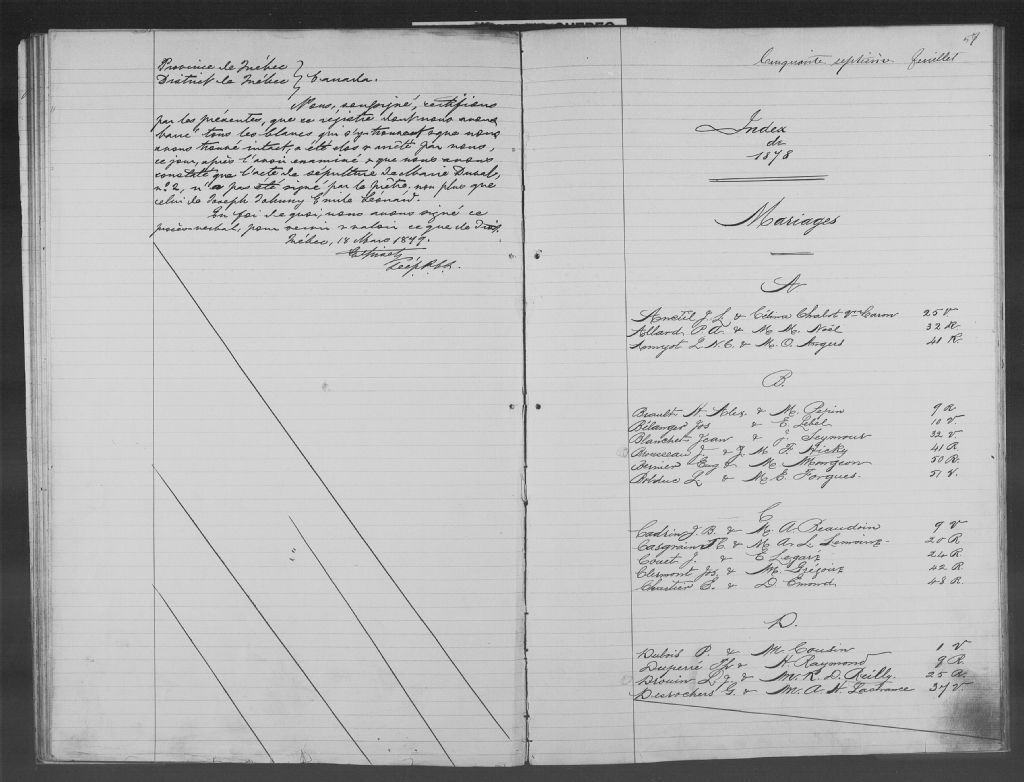 Province de Québec }
District de Québec } Canada.
Nous, soussigné, certifions
par les présentes, que ce régistre dont nous avons
barré tous les blancs qui s'y trouvent & que nous
avons trouvé intact, a été clos & arrêté par nous,
ce jour, après l'avoir examiné & que nous avons
constaté que l'acte de sépulture de Marie Duval,
no. 2, n'a pas été signé par le prêtre, non plus que
celui de Joseph Johnny Emile Léonard.
En foi de quoi, nous avons signé ce
procès-verbal, pour servir & valoir ce que de droit.
Québec, 18 Mars 1879.
57
Cinquante septième feuillet
Index
de
1878
Mariages
A
Anctil J. L. & Célina Chabot Vve Caron 25 V
Allard P. A. & M. M. Noël 32 R.
Amyot L. N. E. & M. O. Angers 48 R.
B.
Beault H. Alex. & M. Pepin 9 R
Bélanger Jos & E. Lebel 10 V.
Blanchet Jean & J. Seymour 32 V.
Brousseau J. & J. M. F. Hicky 41 R
Bernier Eug & M. Mongeon 50 R.
Bolduc L. & M. E. Forgues. 51 V.
C
Cadrin J. B. & M. A. Beaudoin 9 V
Casgrain & M. A. L. Lemoine 20 R
Couet J. & E. Legaré 24 R
Clermont Jos. & M. Grégoire 42 R.
Chartier E. & D. Emond 48 R.
D.
Dubois P. & M. Cousin 1 V.
Duperré & H. Raymond 9 R.
Drouin L. J. & M. R. D. Reilly. 25 R.
Desrochers G. & M. A. H. Lafrance 37 V.